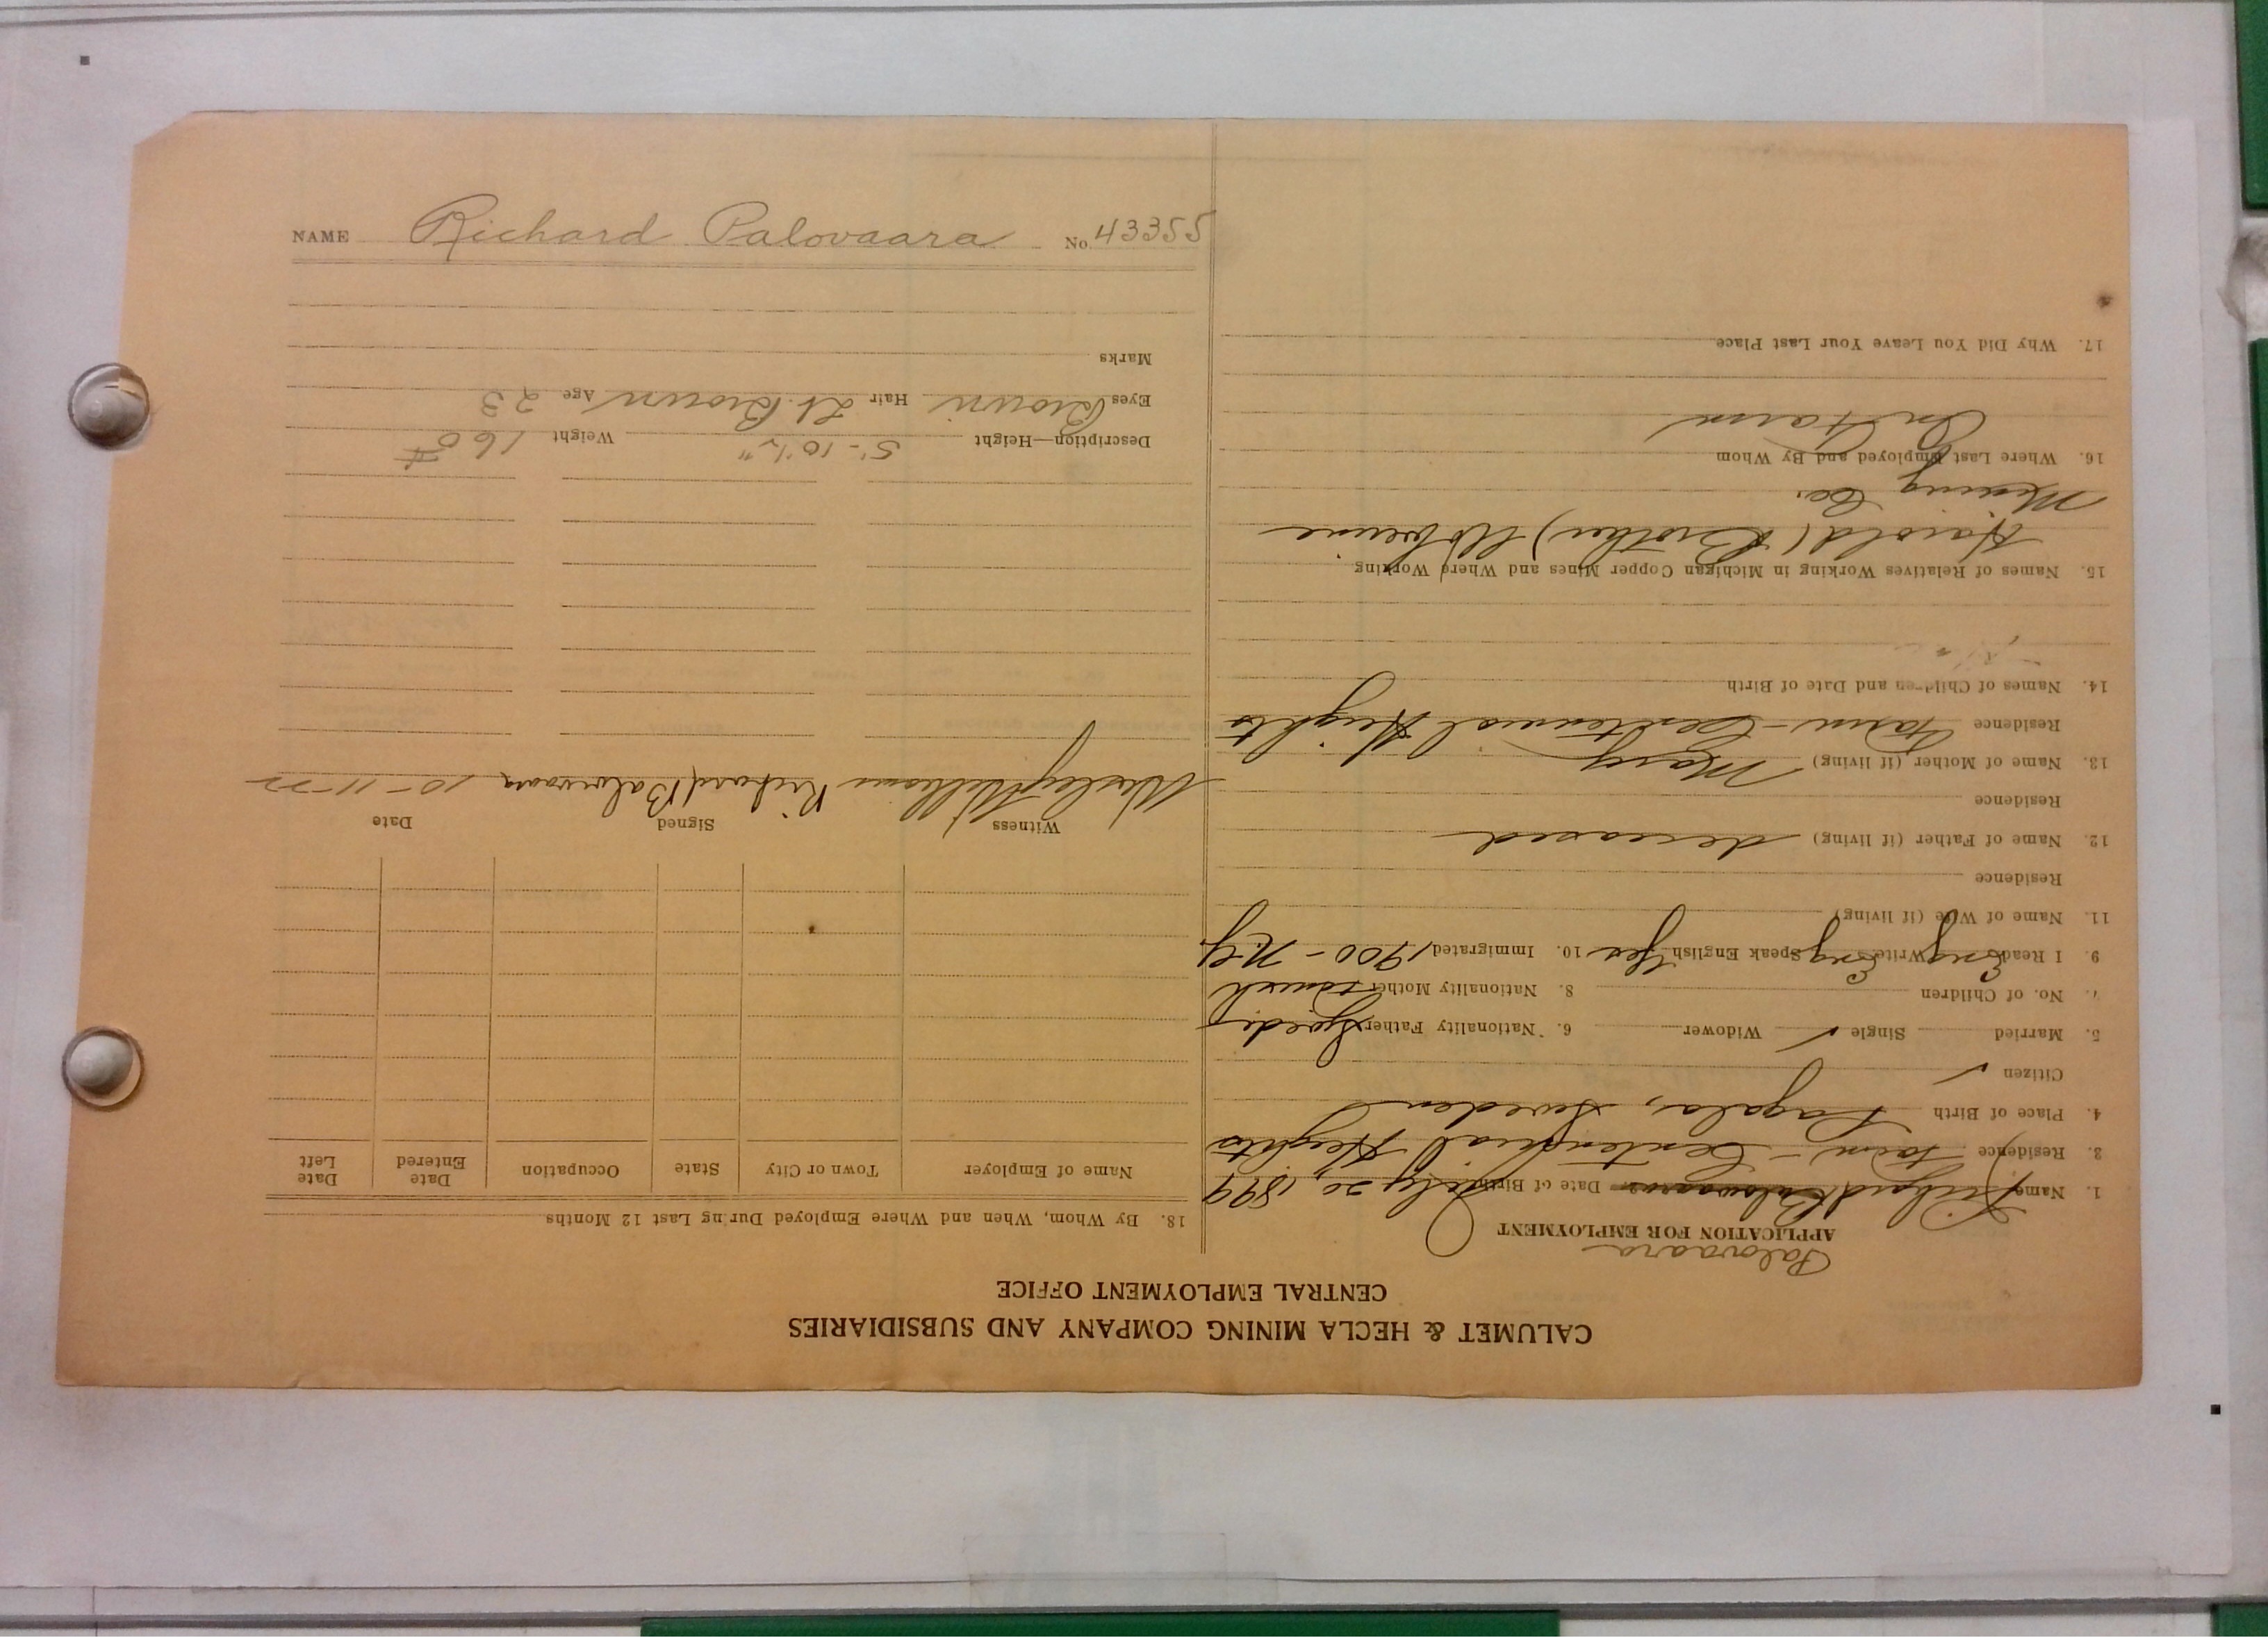 CALUMET & HECLA MINING COMPANY AND SUBSIDIARIES
CENTRAL EMPLOYMENT OFFICE
Palovaara
APPLICATION FOR EMPLOYMENT
1. Name Richard 2. Date of Birth July 20, 1899
3. Residence Farm - Centennial Heights
4. Place of Birth Sweden
Citizen ✓
5. Married Single ✓ Widower 6. Nationality Father Swede
7. No. of Children 8. Nationality Mother
9. I Read Eng Write Eng Speak English Yes 10. Immigrated 1900 - N.Y.
11. Name of Wife (if living)
Residence
12. Name of Father (if living) deceased
Residence
13. Name of Mother (if living) Mary
Residence Farm - Centennial Heights
14. Names of Children and Date of Birth
15. Names of Relatives Working in Michigan Copper Mines and Where Working
Harold (Brother) Wolverine
Mining Co.
16. Where Last Employed and By Whom
On Farm
17. Why Did You Leave Your Last Place
18. By Whom, When and Where Employed During Last 12 Months
Name of Employer Town or City State Occupation Date Entered Date Left
Witness Signed Date
Wesley Williams Richard Palovaara 10-11-22
Description—Height 5'-10½" Weight 160#
Eyes Brown Hair Lt. Brown Age 23
Marks
NAME Richard Palovaara No. 43355